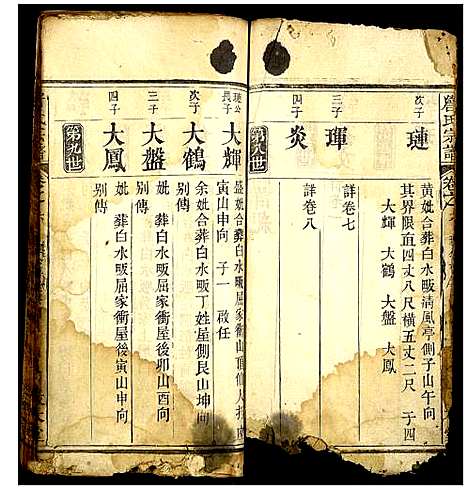 次子
璉
黃妣合葬白水畈清風亭側子山午向
其界限直四丈八尺橫五丈二尺 子四
大輝 大鶴 大盤 大鳳
三子
琿
詳卷七
四子
炎
詳卷八
第八世
璉公長子
大輝
妣合葬白水畈屈家衝山頂仙人
寅山申向 子一 啟任
次子
大鶴
余妣合葬白水畈丁姓屋側艮山坤向
別傳
三子
大盤
妣 葬白水畈屈家衝屋後卯山酉向
別傳
四子
大鳳
妣 葬白水畈屈家衝屋後寅山申向
別傳
第九世
氏宗譜